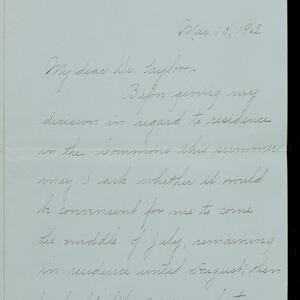 Mar. 13, 1902
My dear Dr. Taylor:-
Before giving my
decision in regard to residence
in the Commons this summer
may I ask whether it would
be convenient for me to come
the middle of July, remaining
in residence until August, then